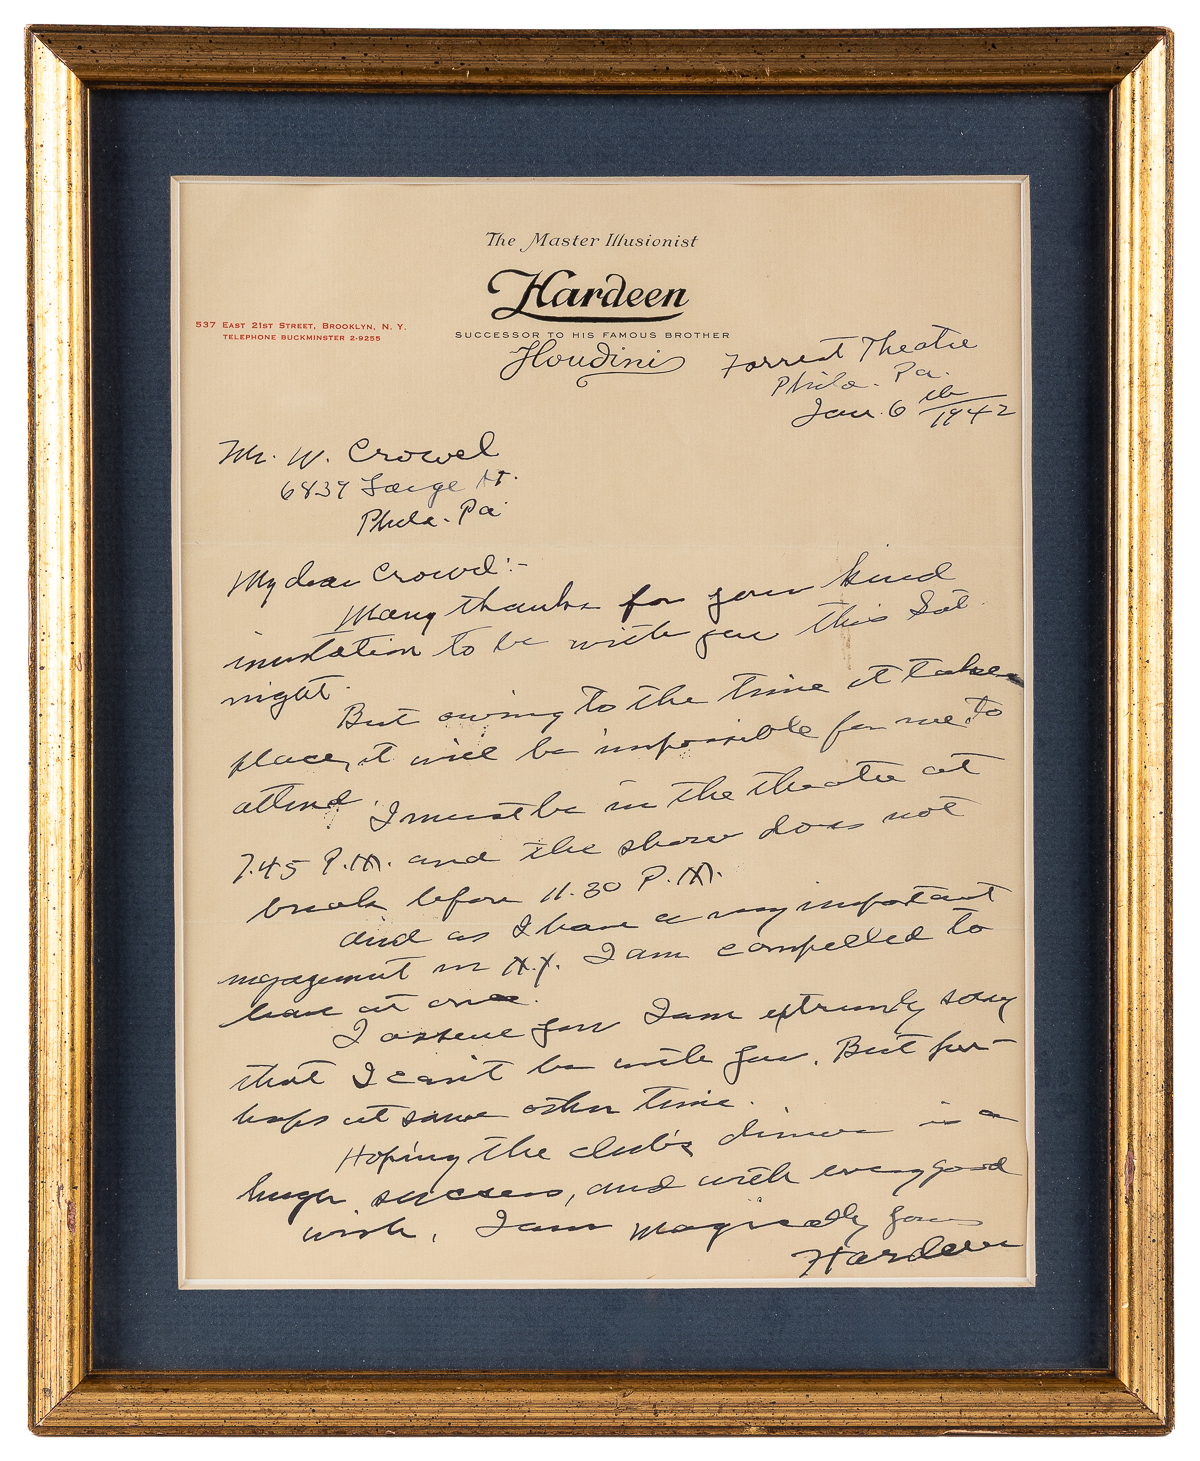 The Master Illusionist
Hardeen
SUCCESSOR TO HIS FAMOUS BROTHER
Houdini
537 EAST 21ST STREET, BROOKLYN, N. Y.
TELEPHONE BUCKMINSTER 2-9255
Forrest Theatre
Phila. Pa.
Jan. 6th/1942
Mr. W. Crowel
6837 Large St.
Phila. Pa
My dear Crowel:-
Many thanks for your kind
invitation to be with you this Sat.
night.
But owing to the time it takes
place, it will be impossible for me to
attend. I must be in the theatre at
7.45 P.M. and the show does not
break before 11.30 P.M.
and as I have a very important
engagement in N.Y. I am compelled to
leave at once.
I assure you I am extremely sorry
that I can't be with you. But per-
haps at some other time.
Hoping the club's dinner is a
huge success, and with every good
wish, I am Magically yours
Hardeen